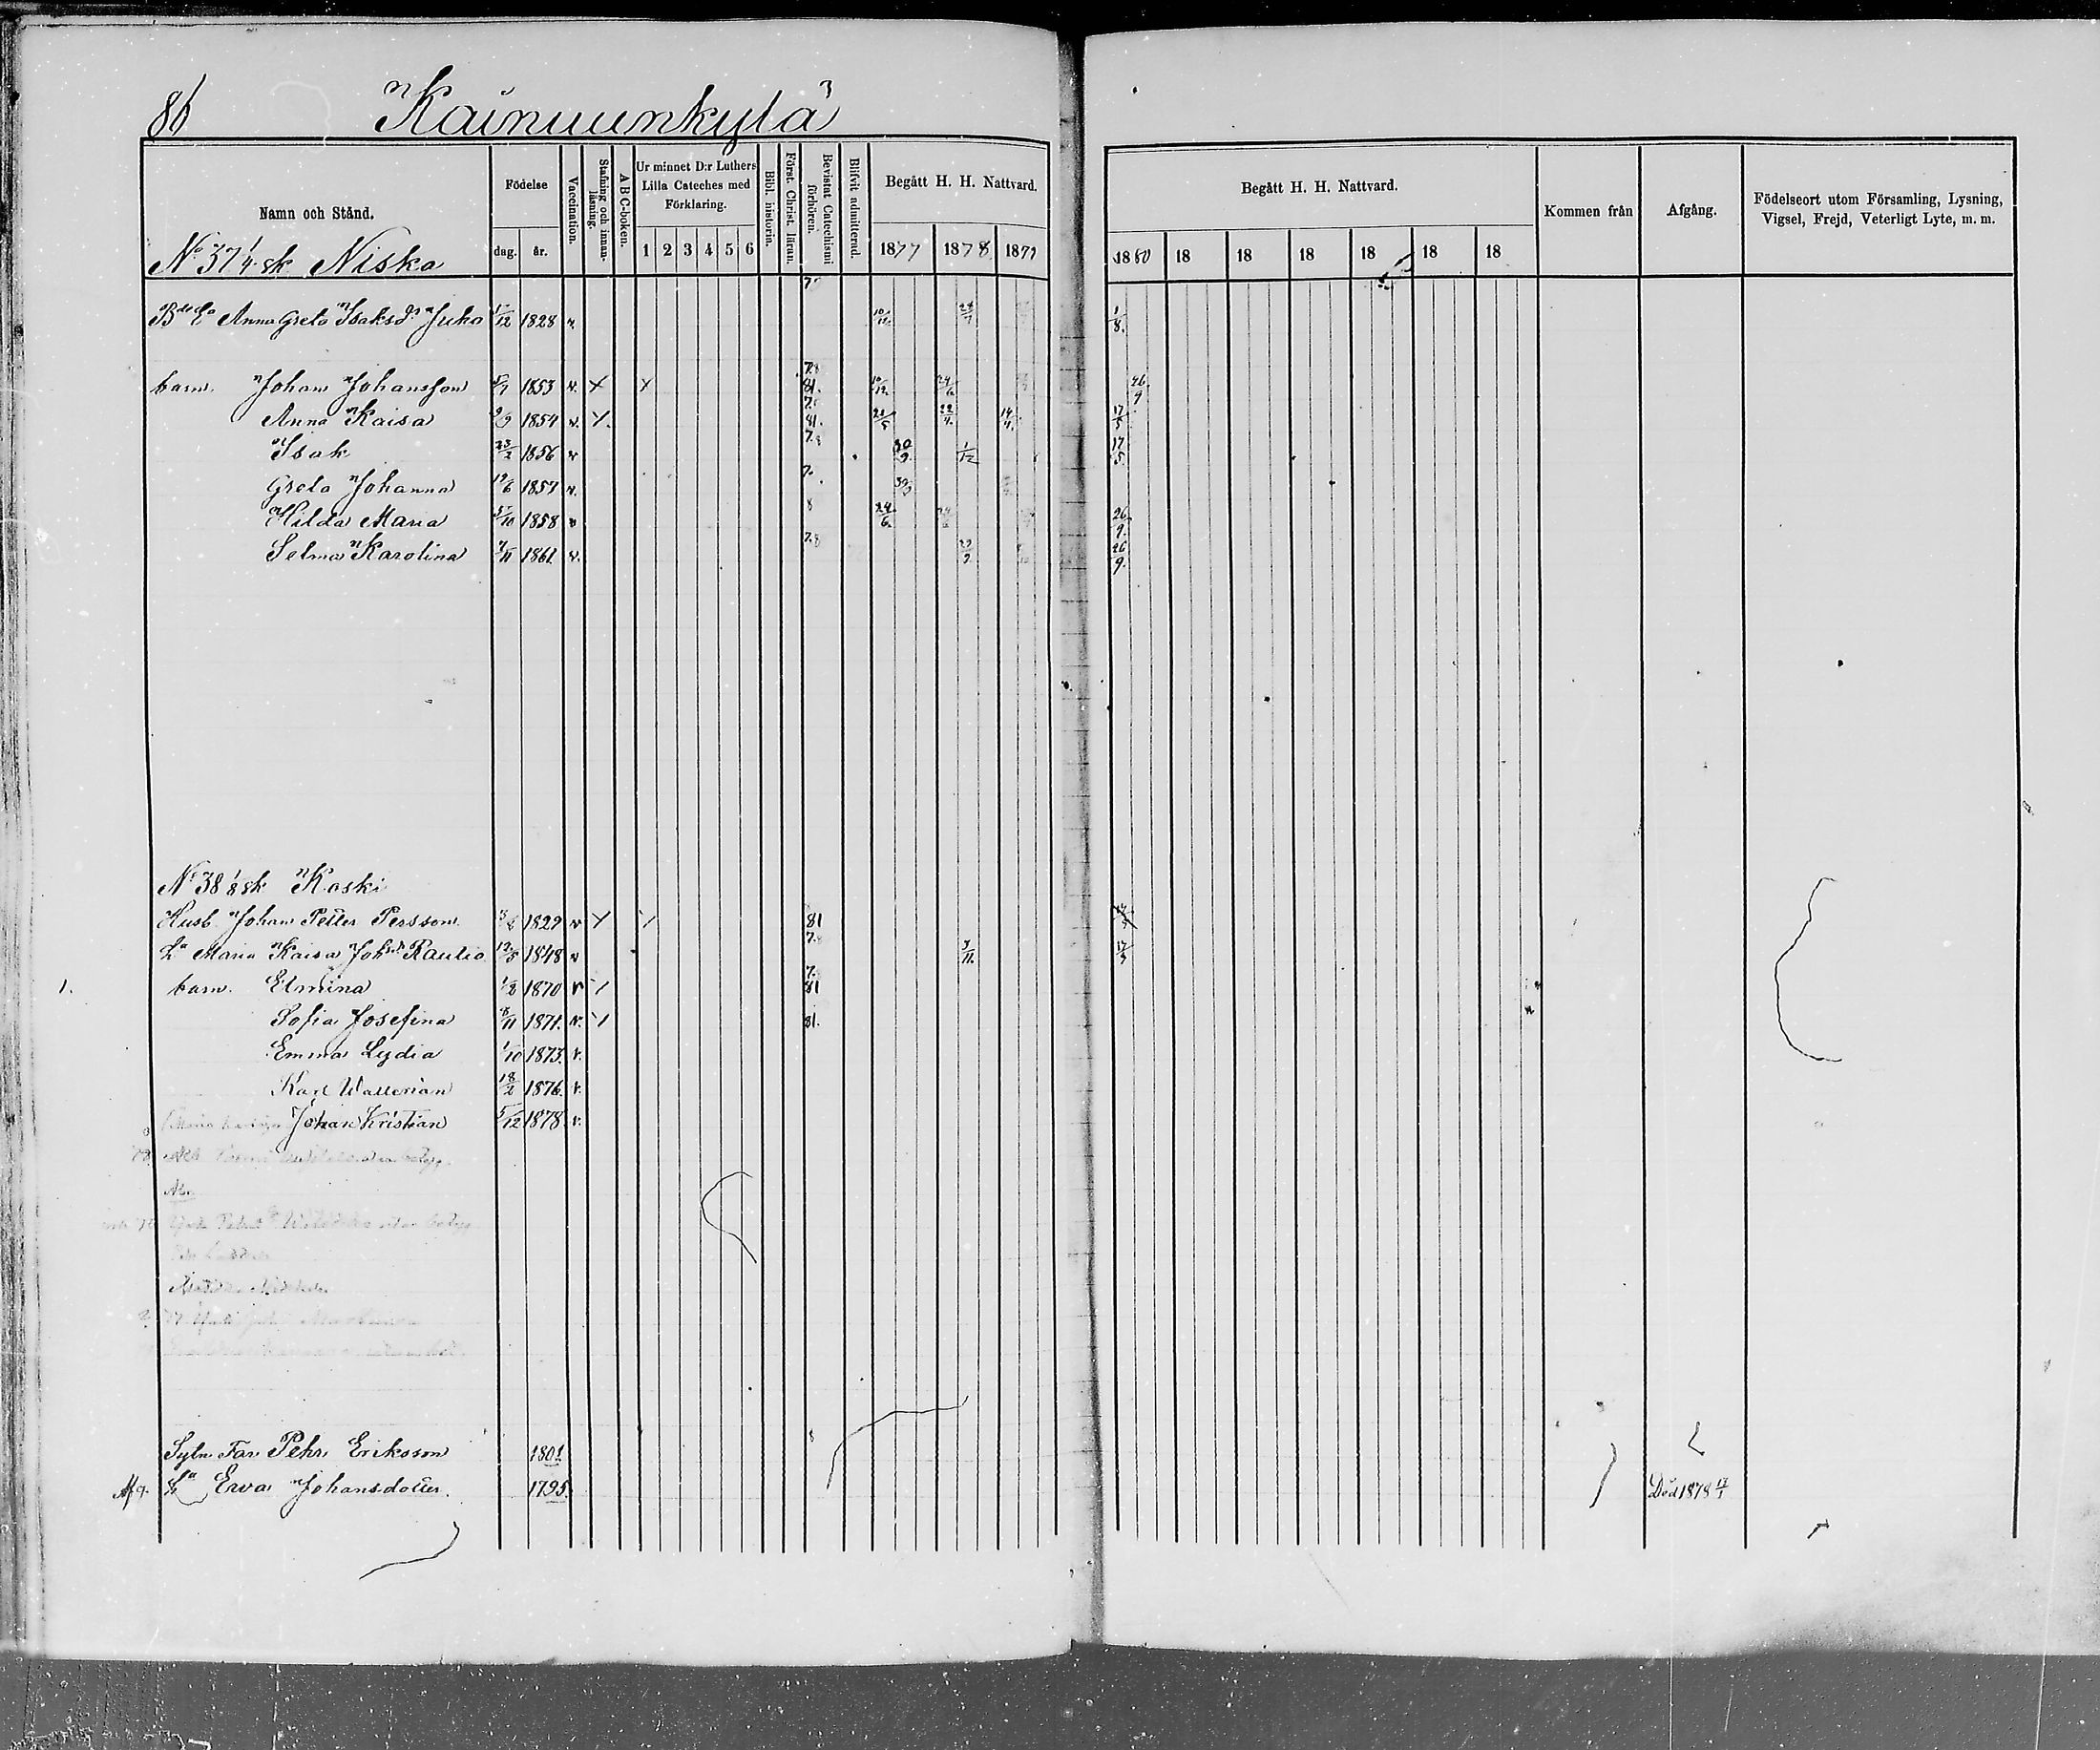 86 Kainuunkylä
Namn och Stånd.
Födelse
dag. år.
Vaccination.
Stafning och innanläsning.
A B C-boken.
Ur minnet D:r Luthers Lilla Cateches med Förklaring.
1 2 3 4 5 6
Bibl. historin.
Först. Christ. läran.
Bevistat Catechismi förhören.
Blifvit admitterad.
Begått H. H. Nattvard.
1877 1878 1879
Begått H. H. Nattvard.
1880 18 18 18 18 18 18
Kommen från
Afgång.
Födelseort utom Församling, Lysning, Vigsel, Frejd, Veterligt Lyte, m. m.
No 37 1/4 sk Niska
Anna Greta Isaksdr Juho 1/12 1828 v. 10/12 24/7 1/8.
barn. Johan Johansson 5/7 1853 v. X X 7.8 81. 10/12. 24/6. 26/9
Anna Kaisa 9/9 1854 v. X. 81. 21/5 22/4. 14/4. 17/5
Isak 23/2 1856 v 7.8 30/9. 1/12 17/5.
Greta Johanna 19/6 1857 v. 7. 30/9
Hilda Maria 5/10 1858 v 8 24/6. 26/9.
Selma Karolina 7/11 1861. v. 7.8 29/9. 26/9.
No 38 1/8 sk Koski
Husb. Johan Petter Persson 1829 v X X 81
Ha Maria Kaisa Johsdr Raulio 12/5 1848 v 7.8 3/11. 17/3
1. barn. Elmina 1/2 1870 v 7. 81
Sofia Josefina 8/11 1871. v. 81.
Emma Lydia 1/10 1873. v.
Karl Wallerian 18/2 1876. v.
Johan Kristian 5/12 1878. v.
Sytn. Far Pehr Eriksson 1801. 8
Afg. Ha Eva Johansdotter. 1795. Död 1878 17/1